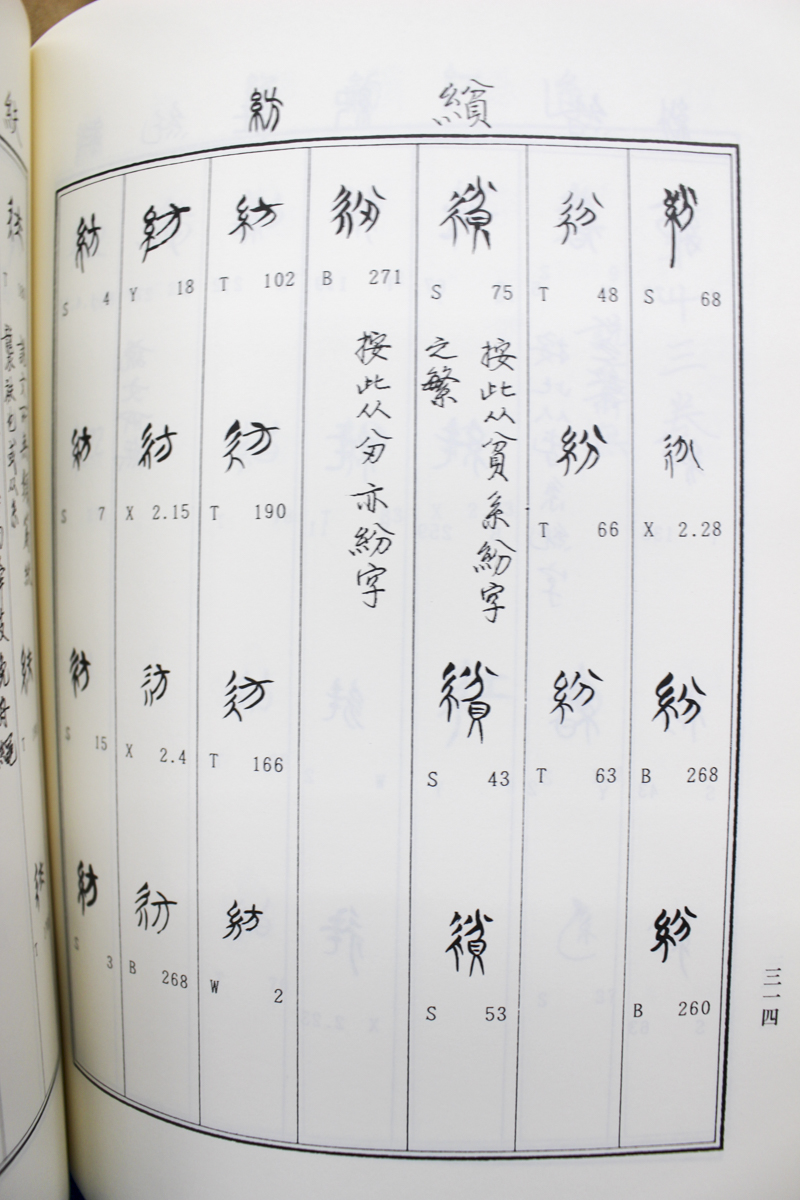 紛
S 68
紛
X 2.28
紛
B 268
紛
B 260
紛
T 48
紛
T 66
紛
T 63
S 75
按此从貧系紛字
之繁
S 43
S 53
B 271
按此从分亦紛字
紡
紡
T 102
紡
T 190
紡
T 166
紡
W 2
紡
Y 18
紡
X 2.15
紡
X 2.4
紡
B 268
紡
S 4
紡
S 7
紡
S 15
紡
S 3
三一四